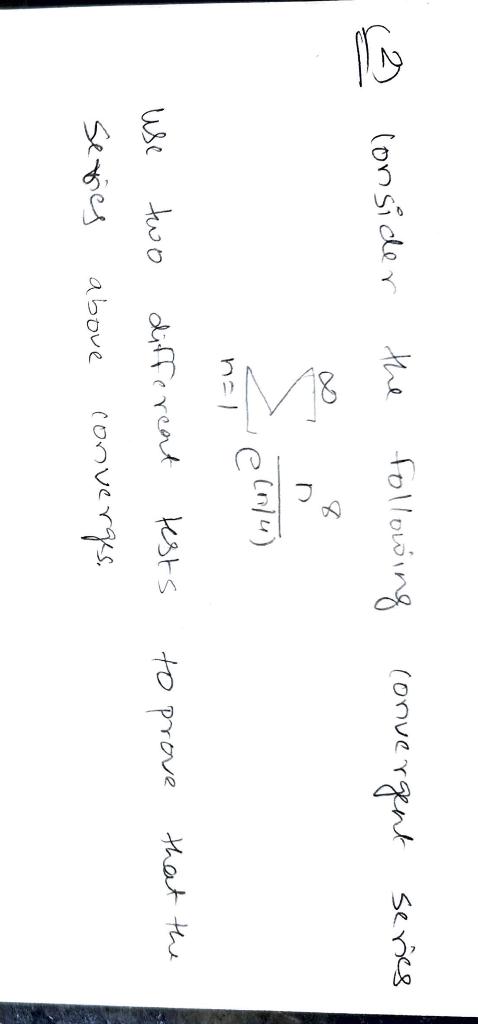 (2) Consider the following convergent series
∞
∑ n^8 / e^(n/4)
n=1
Use two different tests to prove that the
series above converges.